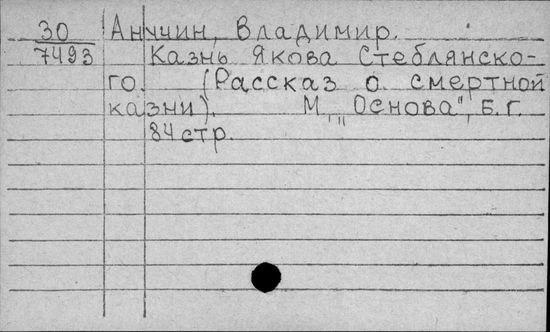 30 Анучин, Владимир.
7493 Казнь Якова Стеблянско-
го. (Рассказ о смертной
казни). М., "Основа", Б.г.
84 стр.